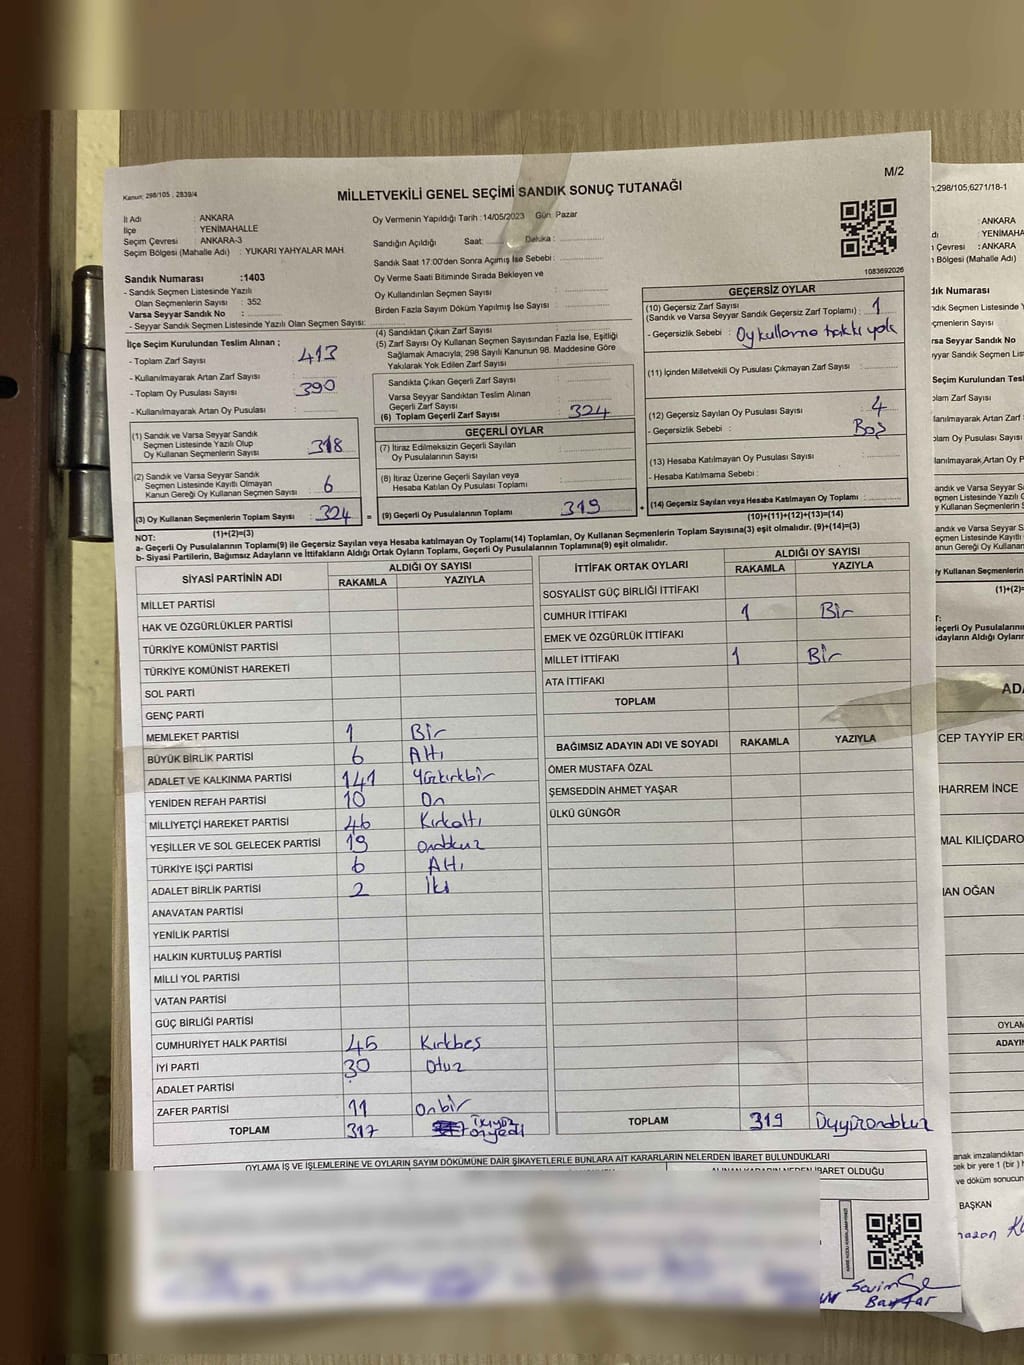 M/2
Kanun: 298/105 , 2839/4
MİLLETVEKİLİ GENEL SEÇİMİ SANDIK SONUÇ TUTANAĞI
İl Adı : ANKARA
İlçe : YENİMAHALLE
Seçim Çevresi : ANKARA-3
Seçim Bölgesi (Mahalle Adı) : YUKARI YAHYALAR MAH.
Oy Vermenin Yapıldığı Tarih : 14/05/2023 Gün: Pazar
Sandığın Açıldığı Saat: Dakika :
Sandık Saat 17:00'den Sonra Açımış İse Sebebi :
Oy Verme Saati Bitiminde Sırada Bekleyen ve
Oy Kullandırılan Seçmen Sayısı
Birden Fazla Sayım Döküm Yapılmış İse Sayısı :
1083692026
Sandık Numarası :1403
- Sandık Seçmen Listesinde Yazılı
Olan Seçmenlerin Sayısı : 352
Varsa Seyyar Sandık No :
- Seyyar Sandık Seçmen Listesinde Yazılı Olan Seçmen Sayısı:
İlçe Seçim Kurulundan Teslim Alınan ;
- Toplam Zarf Sayısı : 413
- Kullanılmayarak Artan Zarf Sayısı :
- Toplam Oy Pusulası Sayısı : 390
- Kullanılmayarak Artan Oy Pusulası :
(1) Sandık ve Varsa Seyyar Sandık
Seçmen Listesinde Yazılı Olup
Oy Kullanan Seçmenlerin Sayısı 318
(2) Sandık ve Varsa Seyyar Sandık
Seçmen Listesinde Kayıtlı Olmayan
Kanun Gereği Oy Kullanan Seçmen Sayısı 6
(3) Oy Kullanan Seçmenlerin Toplam Sayısı : 324
(1)+(2)=(3)
(4) Sandıktan Çıkan Zarf Sayısı
(5) Zarf Sayısı Oy Kullanan Seçmen Sayısından Fazla İse, Eşitliği
Sağlamak Amacıyla, 298 Sayılı Kanunun 98. Maddesine Göre
Yakılarak Yok Edilen Zarf Sayısı
Sandıkta Çıkan Geçerli Zarf Sayısı
Varsa Seyyar Sandıktan Teslim Alınan
Geçerli Zarf Sayısı
(6) Toplam Geçerli Zarf Sayısı : 324
GEÇERLİ OYLAR
(7) İtiraz Edilmeksizin Geçerli Sayılan
Oy Pusulalarının Sayısı
(8) İtiraz Üzerine Geçerli Sayılan veya
Hesaba Katılan Oy Pusulası Toplamı
= (9) Geçerli Oy Pusulalarının Toplamı 319
GEÇERSİZ OYLAR
(10) Geçersiz Zarf Sayısı
(Sandık ve Varsa Seyyar Sandık Geçersiz Zarf Toplamı) : 1
- Geçersizlik Sebebi : Oy kullanma hakkı yok
(11) İçinden Milletvekili Oy Pusulası Çıkmayan Zarf Sayısı
(12) Geçersiz Sayılan Oy Pusulası Sayısı 4
- Geçersizlik Sebebi : Boş
(13) Hesaba Katılmayan Oy Pusulası Sayısı
- Hesaba Katılmama Sebebi :
+ (14) Geçersiz Sayılan veya Hesaba Katılmayan Oy Toplamı
(10)+(11)+(12)+(13)=(14)
NOT:
a- Geçerli Oy Pusulalarının Toplamı(9) ile Geçersiz Sayılan veya Hesaba katılmayan Oy Toplamı(14) Toplamları, Oy Kullanan Seçmenlerin Toplam Sayısına(3) eşit olmalıdır. (9)+(14)=(3)
b- Siyasi Partilerin, Bağımsız Adayların ve İttifakların Aldığı Ortak Oyların Toplamı, Geçerli Oy Pusulalarının Toplamına(9) eşit olmalıdır.
SİYASİ PARTİNİN ADI ALDIĞI OY SAYISI
RAKAMLA YAZIYLA
MİLLET PARTİSİ
HAK VE ÖZGÜRLÜKLER PARTİSİ
TÜRKİYE KOMÜNİST PARTİSİ
TÜRKİYE KOMÜNİST HAREKETİ
SOL PARTİ
GENÇ PARTİ
MEMLEKET PARTİSİ 1 Bir
BÜYÜK BİRLİK PARTİSİ 6 Altı
ADALET VE KALKINMA PARTİSİ 141 Yüzkırkbir
YENİDEN REFAH PARTİSİ 10 On
MİLLİYETÇİ HAREKET PARTİSİ 46 Kırkaltı
YEŞİLLER VE SOL GELECEK PARTİSİ 19 ondokuz
TÜRKİYE İŞÇİ PARTİSİ 6 Altı
ADALET BİRLİK PARTİSİ 2 İki
ANAVATAN PARTİSİ
YENİLİK PARTİSİ
HALKIN KURTULUŞ PARTİSİ
MİLLİ YOL PARTİSİ
VATAN PARTİSİ
GÜÇ BİRLİĞİ PARTİSİ
CUMHURİYET HALK PARTİSİ 45 Kırkbeş
İYİ PARTİ 30 Otuz
ADALET PARTİSİ
ZAFER PARTİSİ 11 Onbir
TOPLAM 317
İTTİFAK ORTAK OYLARI ALDIĞI OY SAYISI
RAKAMLA YAZIYLA
SOSYALİST GÜÇ BİRLİĞİ İTTİFAKI
CUMHUR İTTİFAKI 1 Bir
EMEK VE ÖZGÜRLÜK İTTİFAKI
MİLLET İTTİFAKI 1 Bir
ATA İTTİFAKI
TOPLAM
BAĞIMSIZ ADAYIN ADI VE SOYADI RAKAMLA YAZIYLA
ÖMER MUSTAFA ÖZAL
ŞEMSEDDİN AHMET YAŞAR
ÜLKÜ GÜNGÖR
TOPLAM 319 Üçyüzondokuz
OYLAMA İŞ VE İŞLEMLERİNE VE OYLARIN SAYIM DÖKÜMÜNE DAİR ŞİKAYETLERLE BUNLARA AİT KARARLARIN NELERDEN İBARET BULUNDUKLARI
298/105;6271/18-1
: ANKARA
: YENİMAHA
: ANKARA
Çevresi
Bölgesi (Mahalle Adı)
CEP TAYYİP ER
HARREM İNCE
MAL KILIÇDARO
AN OĞAN
OYLAM
ADAYIN
BAŞKAN